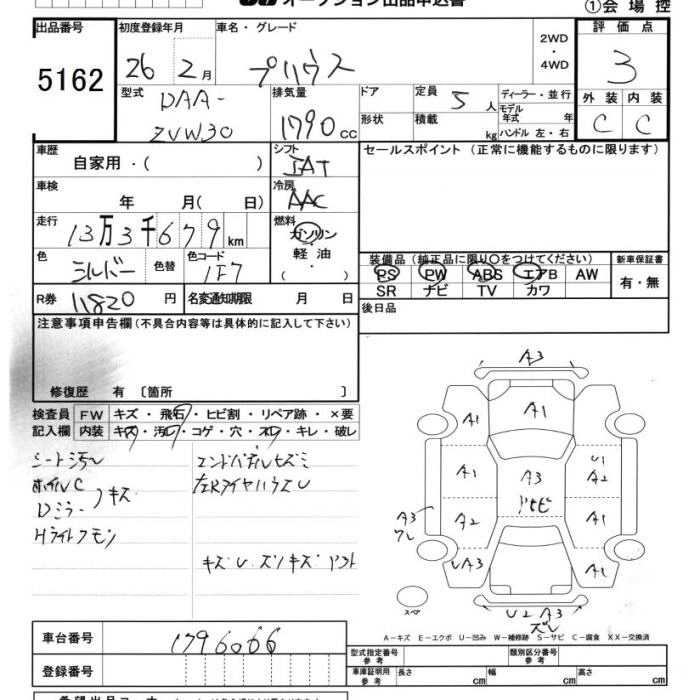 オークション出品申込書
①会場控
出品番号 5162
初度登録年月 26 2月
車名・グレード プリウス
2WD・4WD
評価点 3
外装 C 内装 C
型式 DAA-ZVW30
排気量 1790cc
ドア
形状
定員 5人
積載 kg
ディーラー・並行
モデル年式 年
ハンドル 左・右
車歴 自家用・( )
シフト
セールスポイント(正常に機能するものに限ります)
車検 年 月( 日)
冷房 AAC
走行 13万3千679km
燃料 ガソリン・軽油・( )
色 シルバー 色替
色コード 1F7
装備品(純正品に限り○をつけてください)
PS PW ABS エアB AW
SR ナビ TV カワ
新車保証書 有・無
R券 11820円
名変通知期限 月 日
後日品
注意事項申告欄(不具合内容等は具体的に記入して下さい)
修復歴 有〔箇所 〕
検査員記入欄
FW キズ・飛石・ヒビ割・リペア跡・×要
内装 キズ・汚レ・コゲ・穴・スレ・キレ・破レ
シート汚レ
ホイルC
Dミラーキズ
Hライトクモリ
キズ U
A3
A1
A1
A1
A3
U1
A2
A2
A1
A3
UA3
A1
U2 A3
ズレ
スペア
A-キズ E-エクボ U-凹み W-補修跡 S-サビ C-腐食 XX-交換済
車台番号 1796066
登録番号
型式指定番号 参考
類別区分番号 参考
車庫証明用 参考 長さ cm 幅 cm 高さ cm